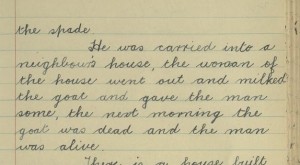 the spade.
He was carried into a
neighbours house, the woman of
the house went out and milked
the goat and gave the man
some, the next morning the
goat was dead and the man
was alive.
There is a house built